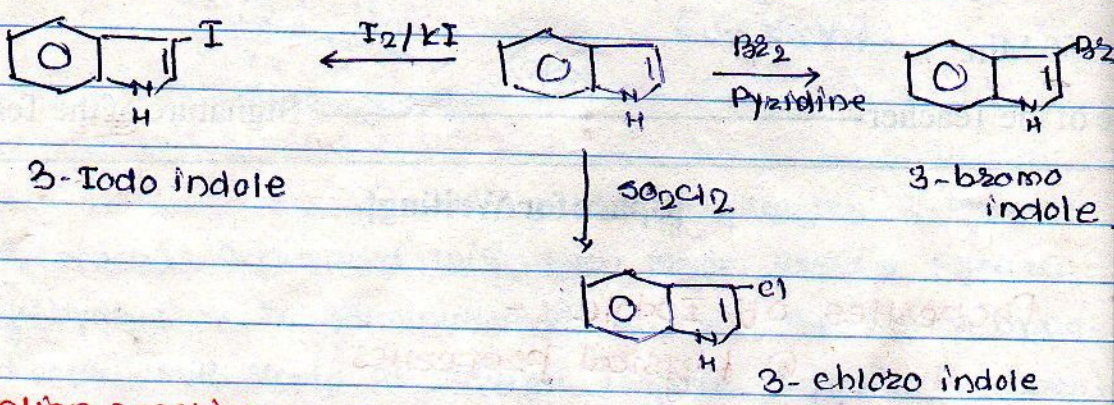 I
I2/KI
Br2
Pyridine
Br
N
H
N
H
N
H
3-Iodo indole
SO2Cl2
3-bromo
indole
Cl
N
H
3-chloro indole